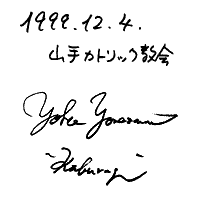 1999.12.4.
山手カトリック教会
Yoko
"Kaburagi"